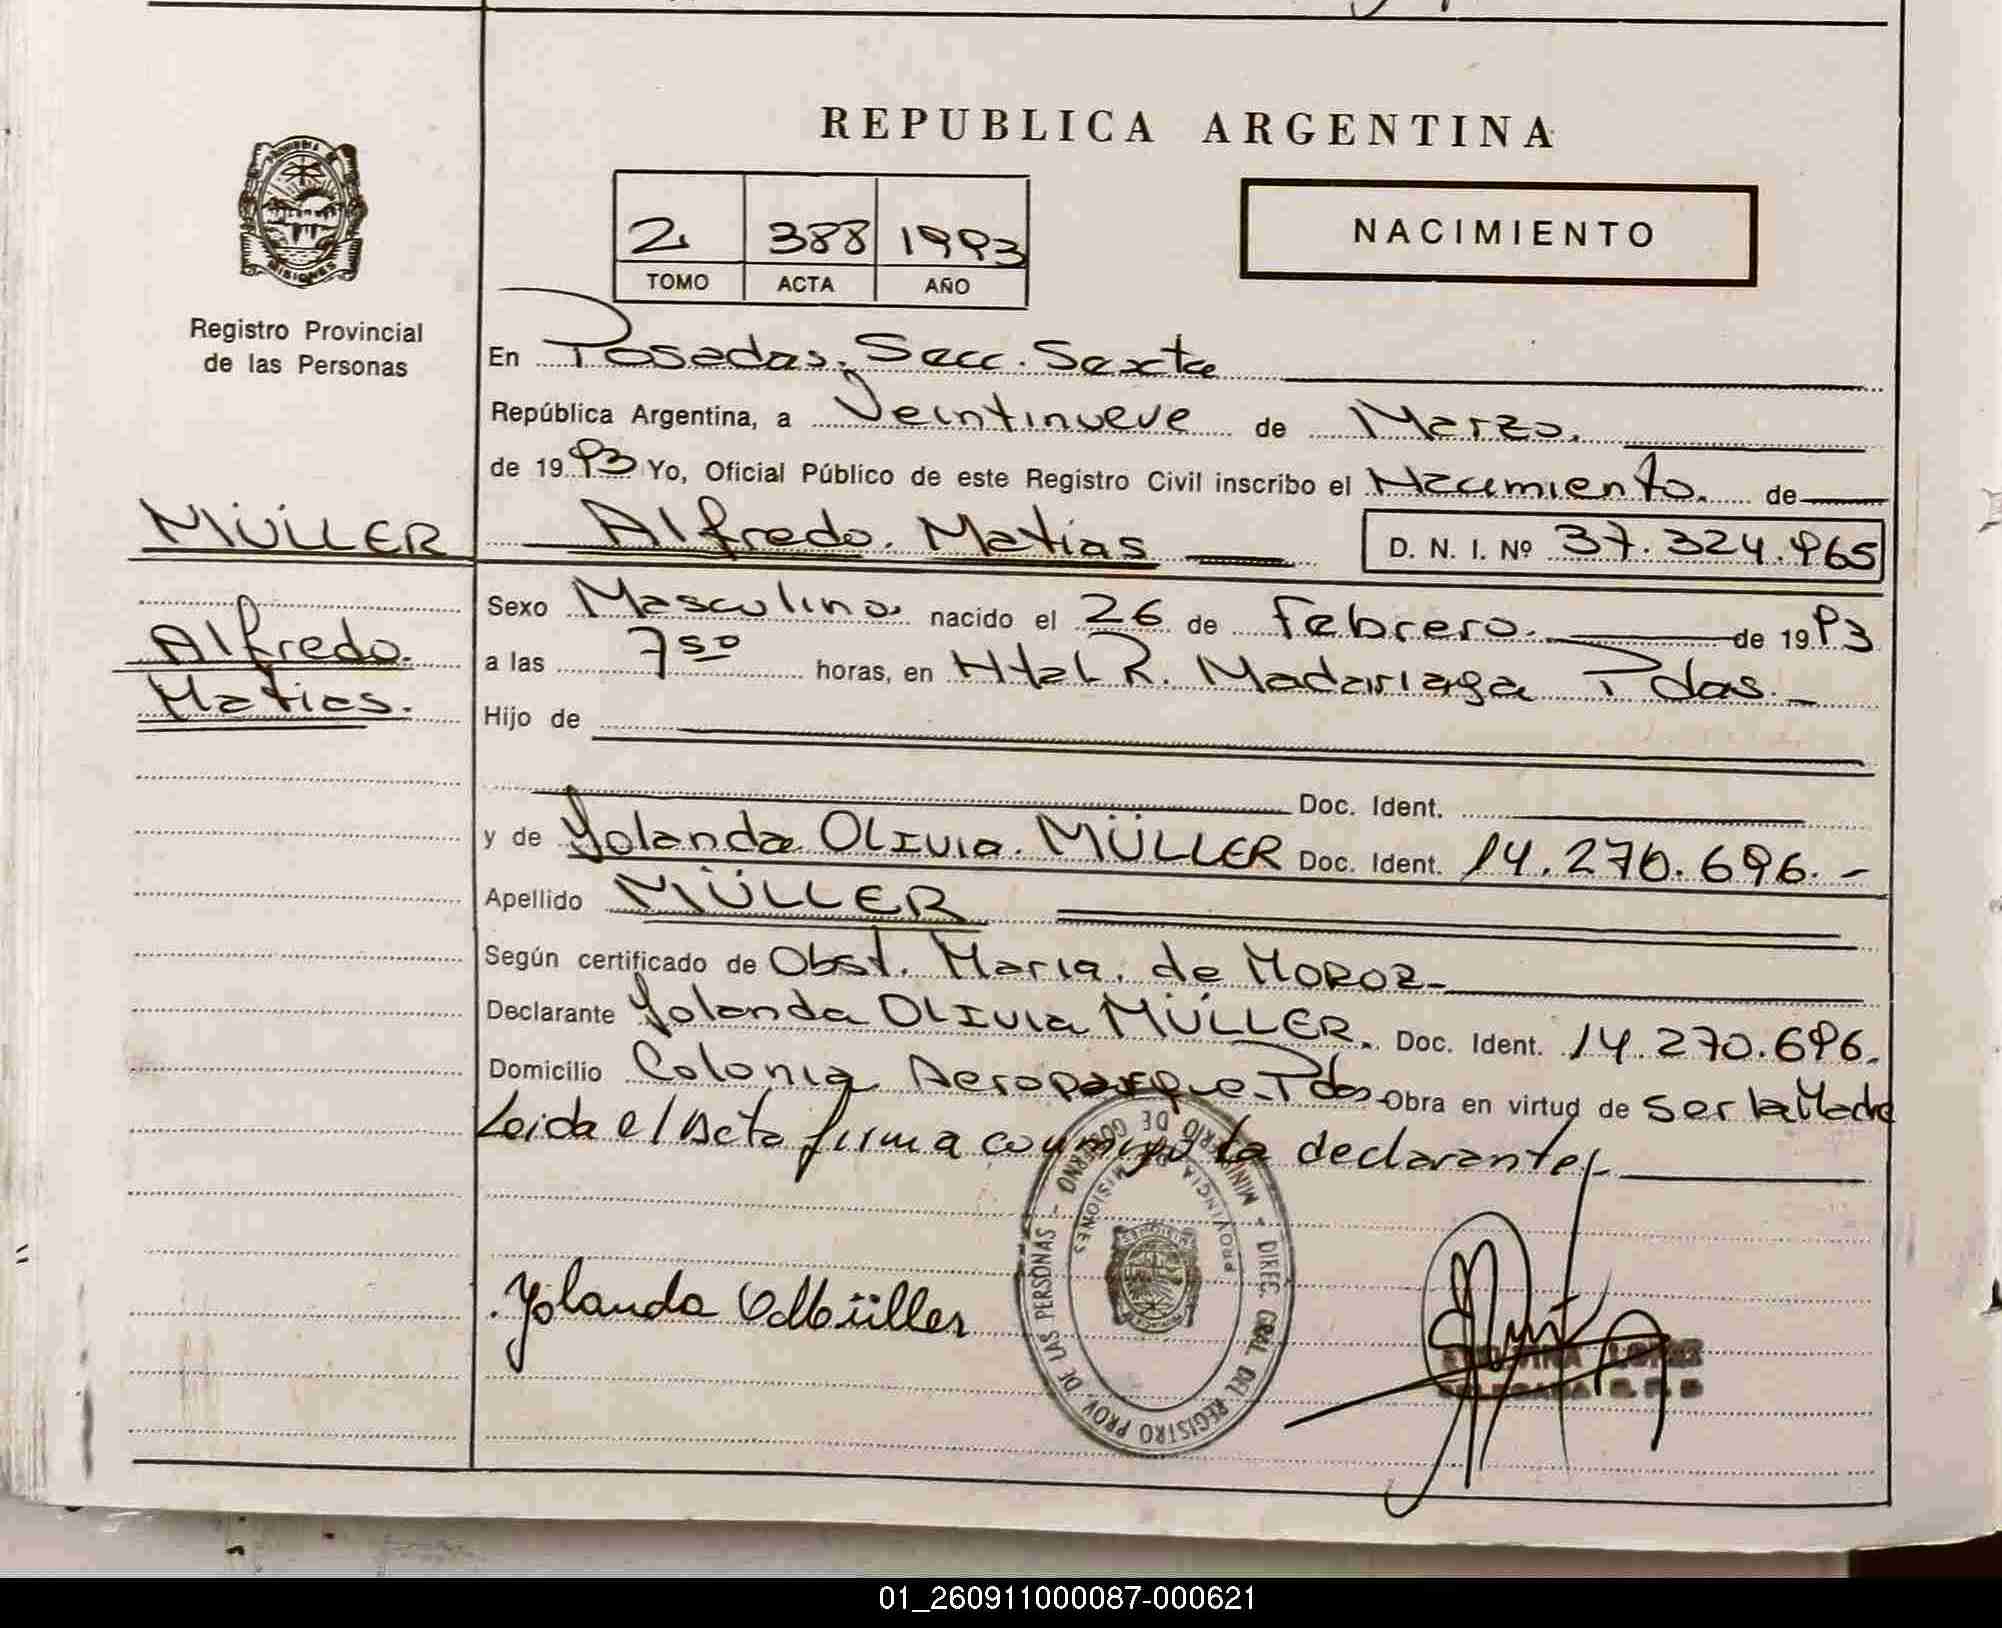 REPUBLICA ARGENTINA
PROVINCIA DE
MISIONES
Registro Provincial
de las Personas
2 388 1993
TOMO ACTA AÑO
NACIMIENTO
En Posadas. Secc. Sexta
República Argentina, a Veintinueve de Marzo.
de 1993 Yo, Oficial Público de este Registro Civil inscribo el Nacimiento. de
MÜLLER
Alfredo. Matías D. N. I. Nº 37.324.965
Alfredo.
Matías.
Sexo Masculino. nacido el 26 de Febrero. de 1993
a las 7 50 horas, en Htal R. Madariaga Pdas.
Hijo de
Doc. Ident.
y de Yolanda OLIVIA. MÜLLER Doc. Ident. 14.270.696.-
Apellido MÜLLER
Según certificado de Obst. María. de MOROZ-
Declarante Yolanda OLIVIA MÜLLER. Doc. Ident. 14.270.696.
Domicilio Colonia Aeroparque-Pdas- Obra en virtud de Ser la Madre
Leida el Acta firma conmigo la declarante
Yolanda O Müller
MINISTERIO DE GOBIERNO - DIREC. GRAL. DEL REGISTRO PROV. DE LAS PERSONAS -
PROVINCIA DE MISIONES
01_260911000087-000621